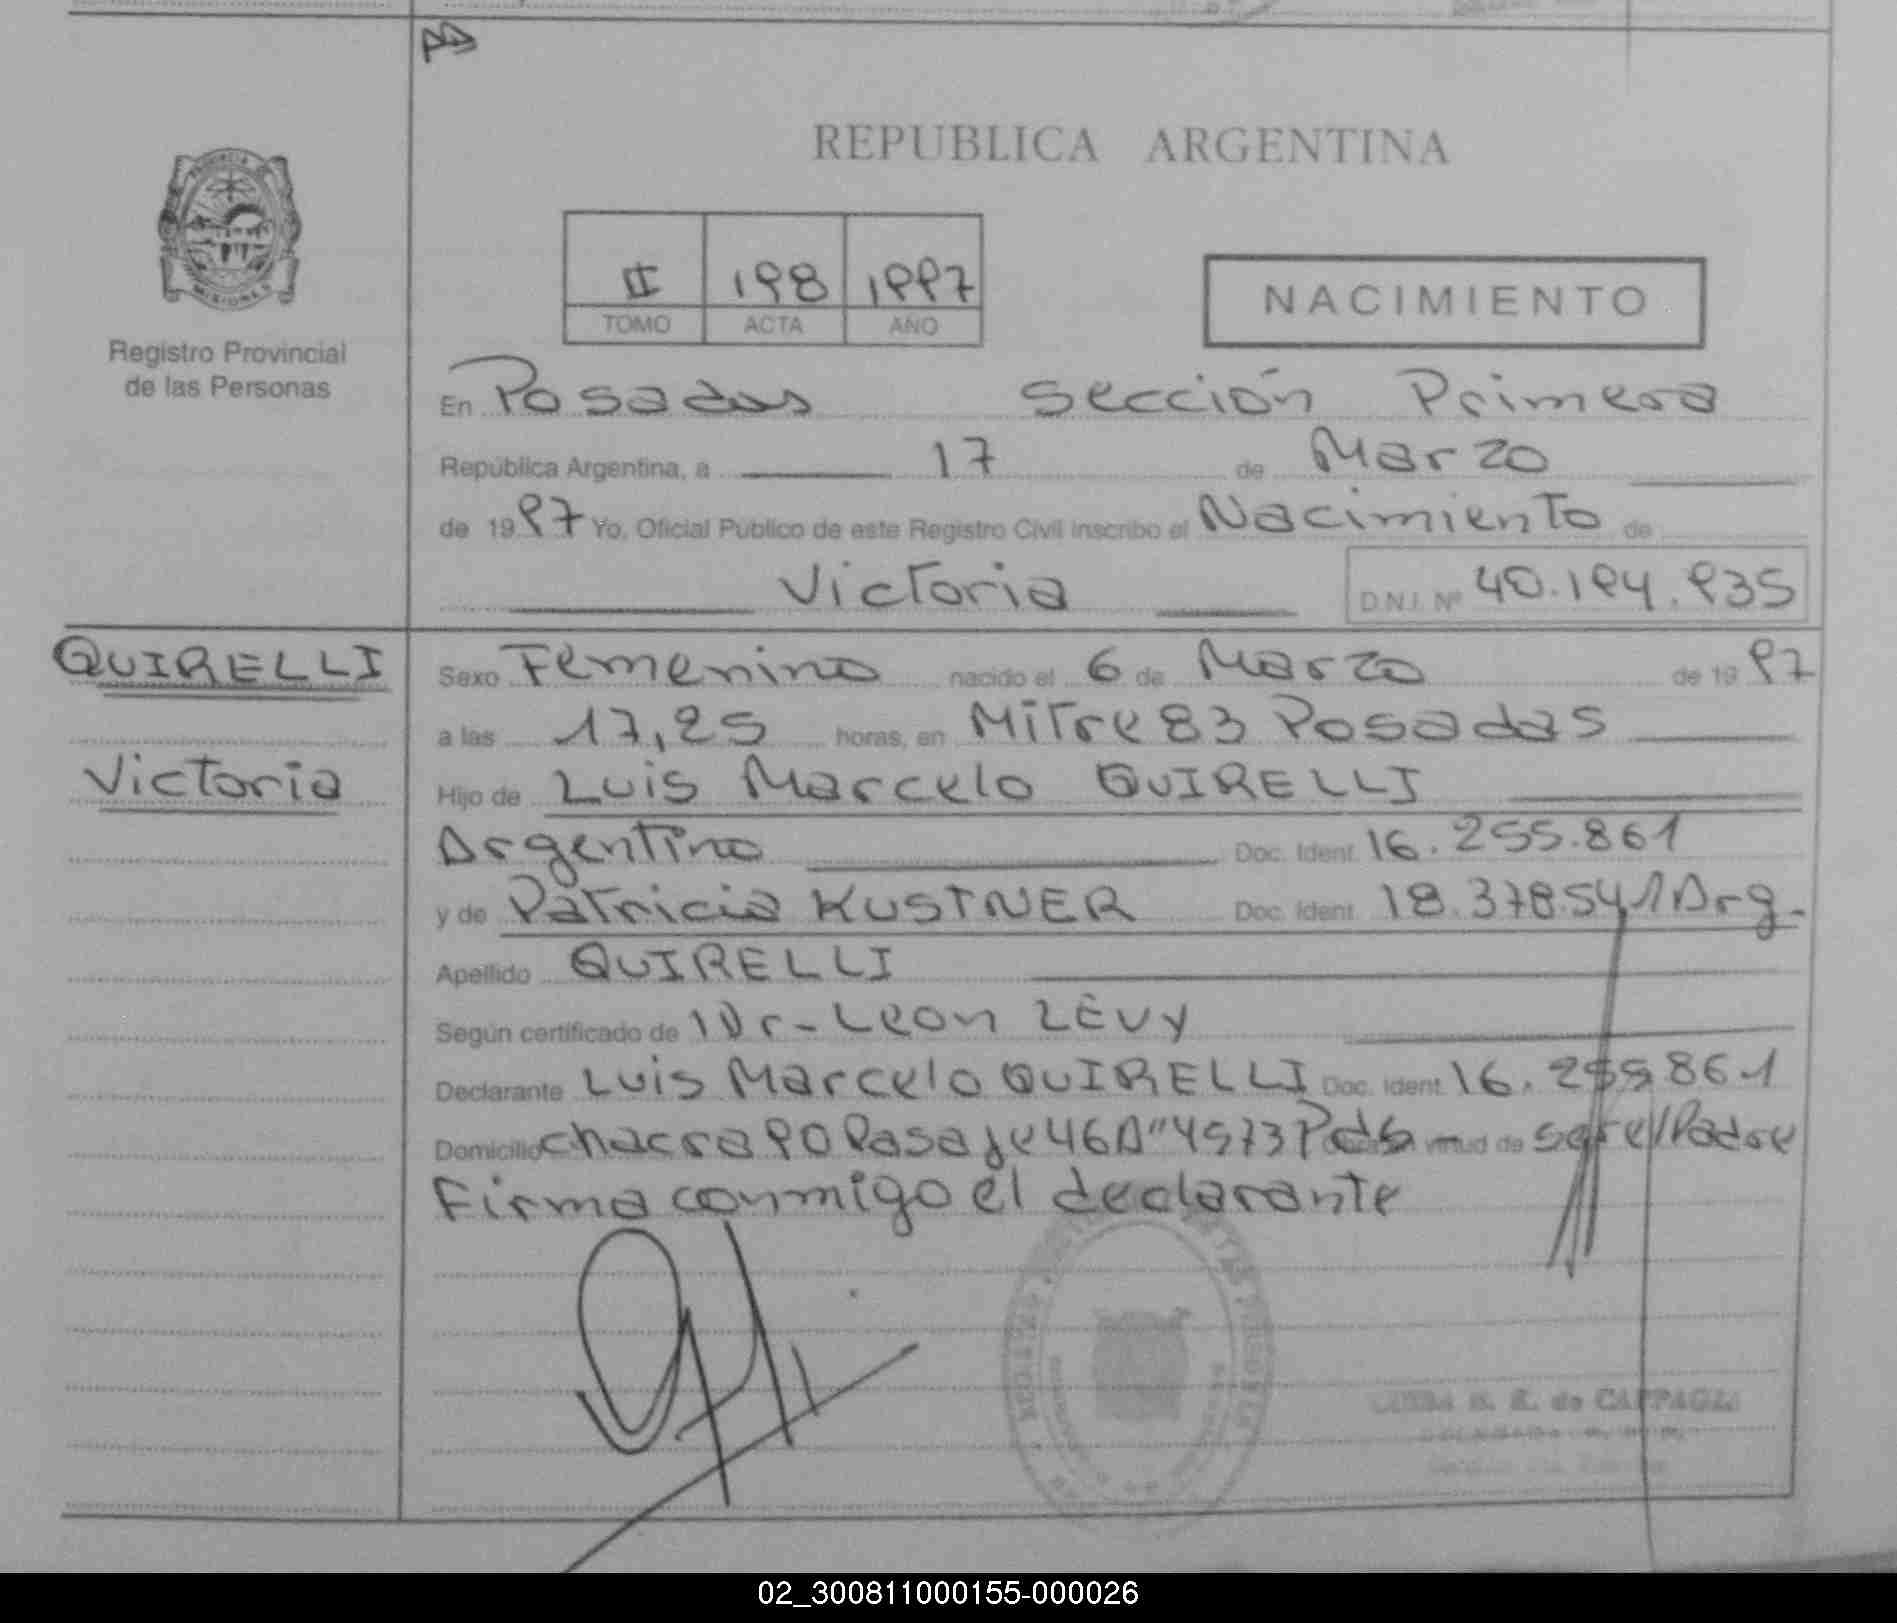 REPUBLICA ARGENTINA
PROVINCIA
MISIONES
Registro Provincial
de las Personas
II 198 1997
TOMO ACTA AÑO
NACIMIENTO
En Posadas Sección Primera
República Argentina, a 17 de Marzo
de 1997 Yo, Oficial Público de este Registro Civil inscribo el Nacimiento de
Victoria D.N.I. Nº 40.194.935
QUIRELLI
Victoria
Sexo Femenino nacido el 6 de Marzo de 1997
a las 17,25 horas, en Mitre 83 Posadas
Hijo de Luis Marcelo QUIRELLI
Argentino Doc. Ident. 16.255.861
y de Patricia KUSTNER Doc. Ident. 18.378.541 Arg.
Apellido QUIRELLI
Según certificado de Dr- Leon LEVY
Declarante Luis Marcelo QUIRELLI Doc. Ident. 16.255.861
Domicilio chacra 90 Pasaje 46A" 4573 Pds virtud de ser el Padre
Firma conmigo el declarante
de CAPPAGLI
02_300811000155-000026